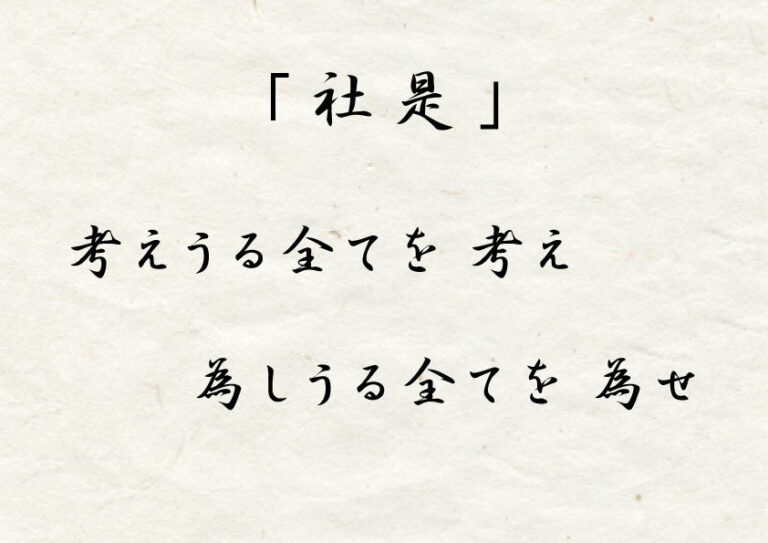 「社是」
考えうる全てを 考え
為しうる全てを 為せ